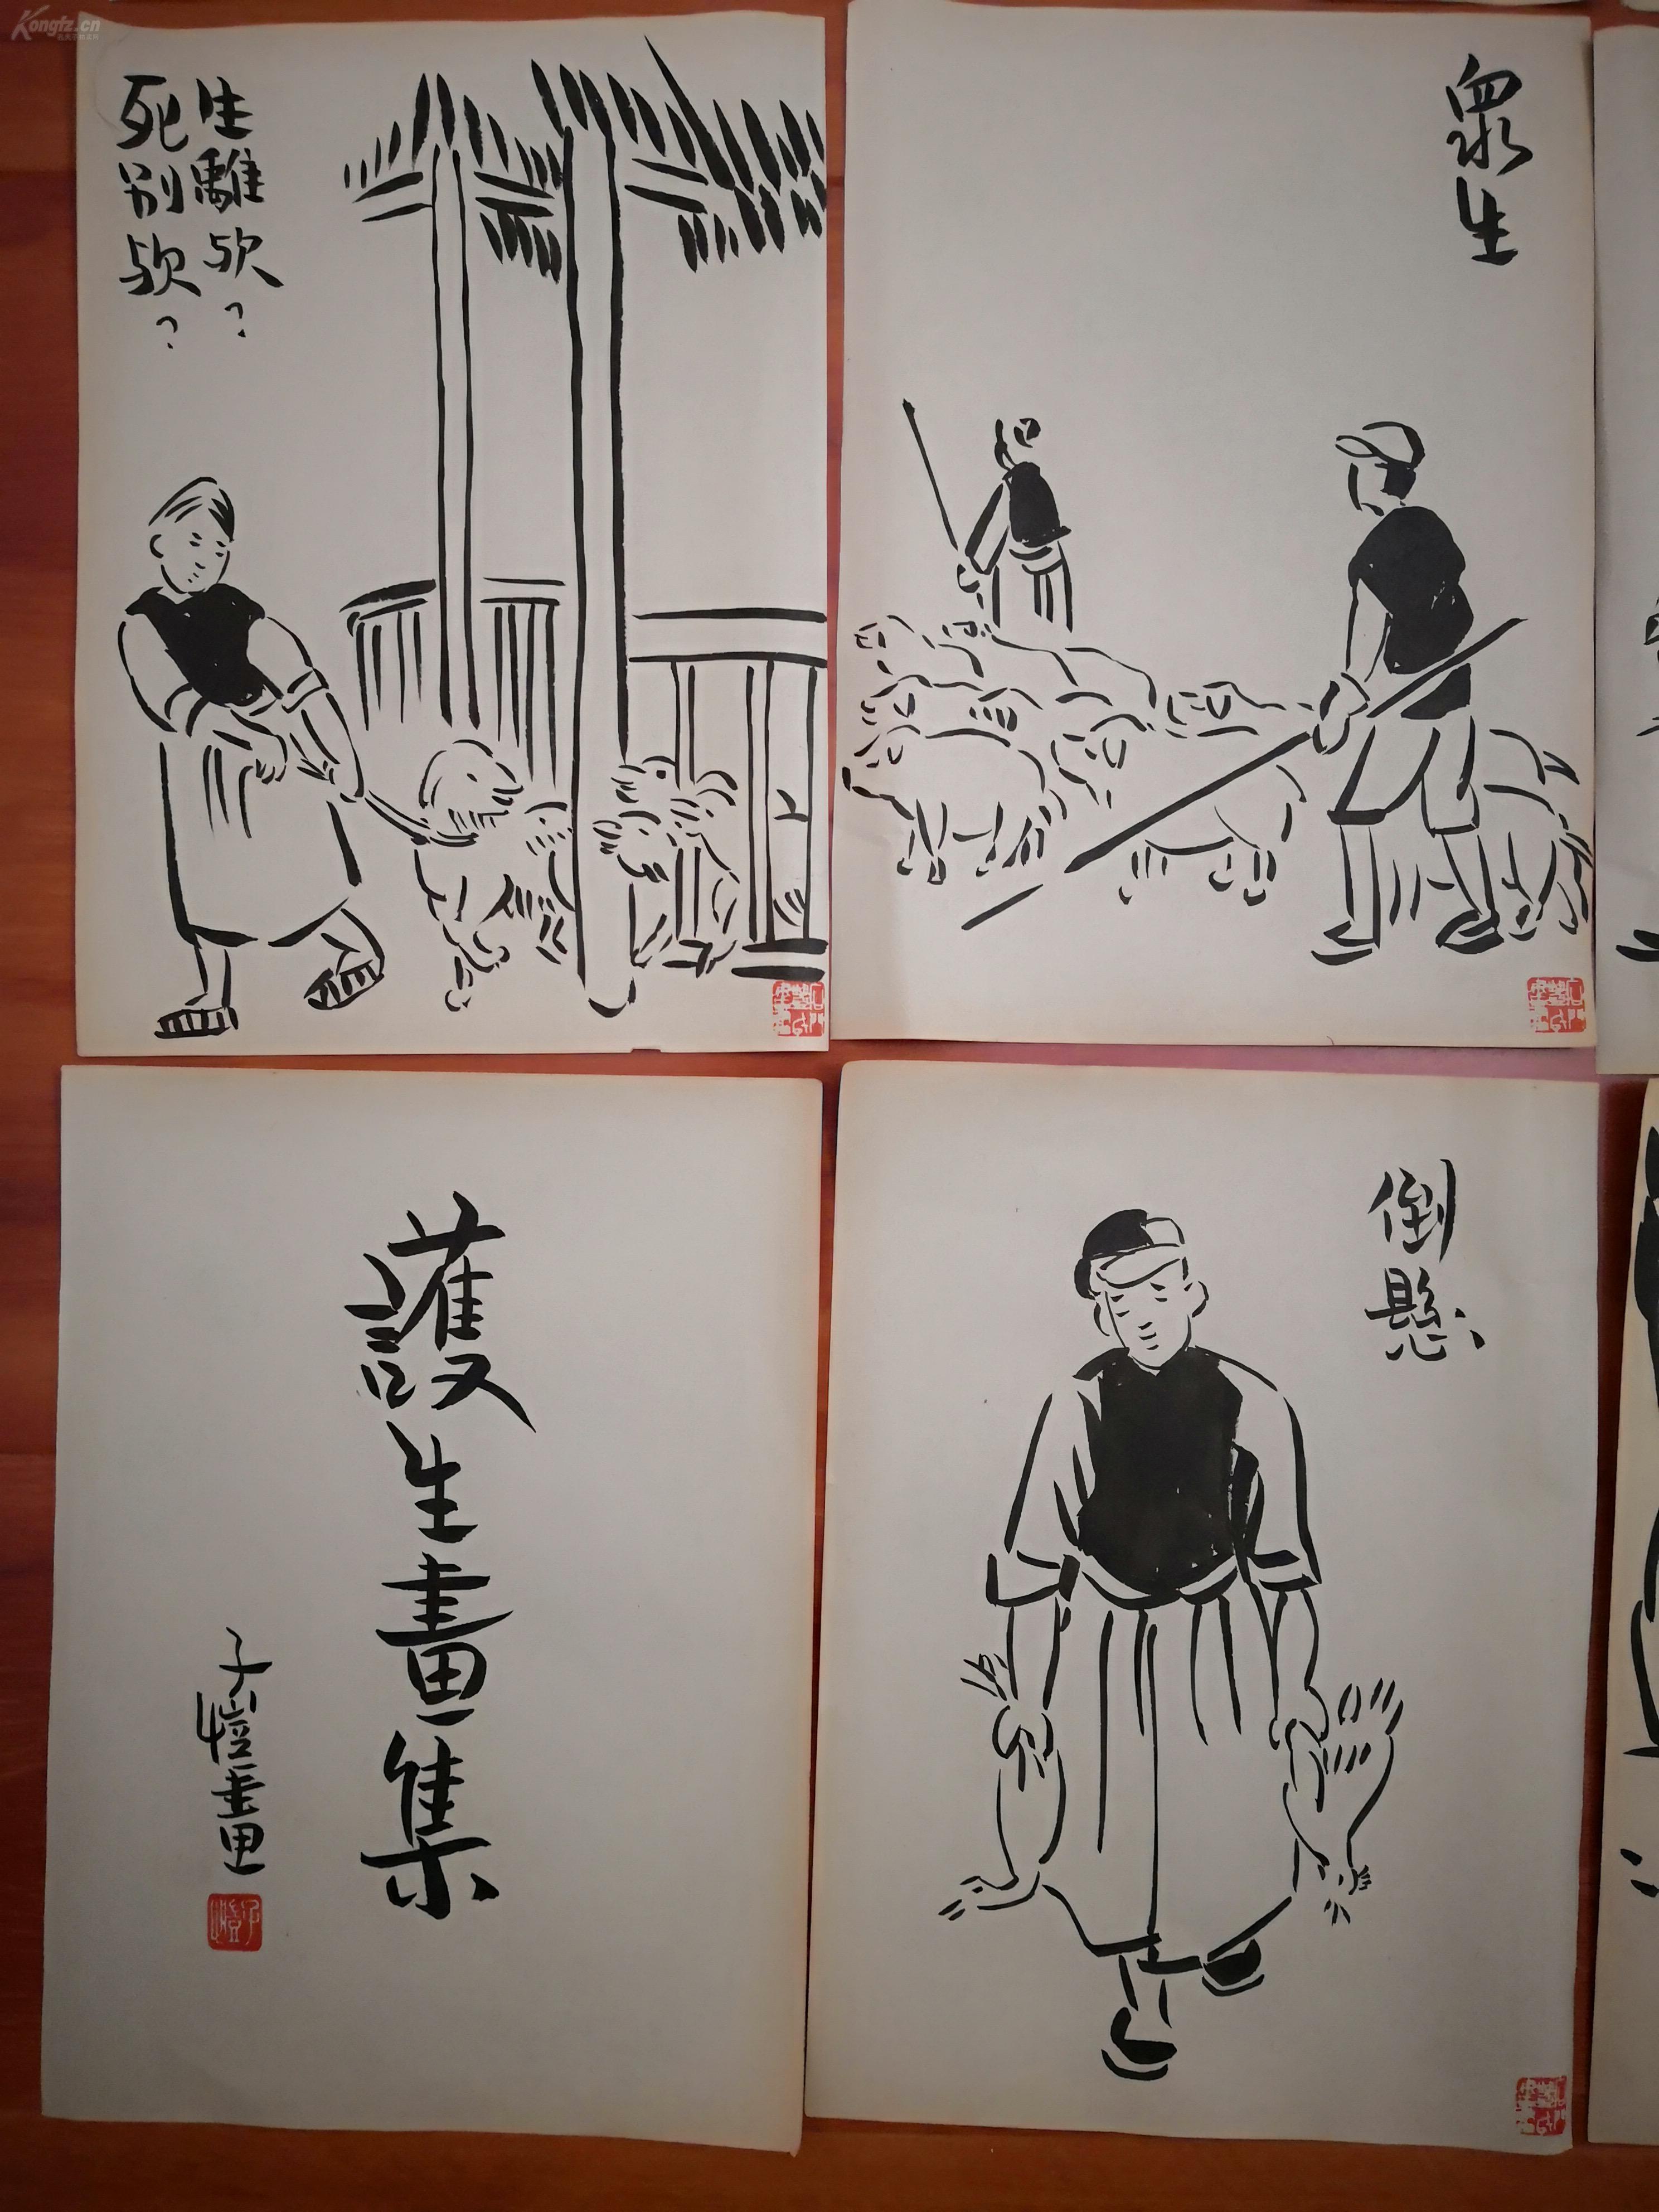 Kongfz.cn
生離歟?
死別歟?
眾生
護生畫集
子愷畫
子愷
倒懸